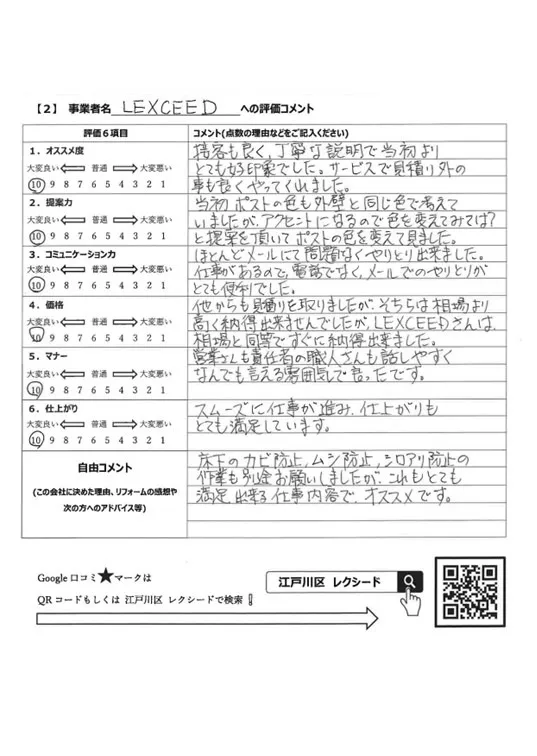 【2】 事業者名 LEXCEED への評価コメント
評価6項目
コメント(点数の理由などをご記入ください)
1. オススメ度
大変良い 普通 大変悪い
10 9 8 7 6 5 4 3 2 1
接客も良く、丁寧な説明で当初より
とても好印象でした。サービスで見積り外の
事も良くやってくれました。
2. 提案力
大変良い 普通 大変悪い
10 9 8 7 6 5 4 3 2 1
当初ポストの色も外壁と同じ色で考えて
いましたが、アクセントになるので色を変えてみては?
と提案を頂いてポストの色を変えて見ました。
3. コミュニケーション力
大変良い 普通 大変悪い
10 9 8 7 6 5 4 3 2 1
ほとんどメールにて問題なくやりとり出来ました。
仕事があるので、電話でなく、メールでのやりとりが
とても便利でした。
4. 価格
大変良い 普通 大変悪い
10 9 8 7 6 5 4 3 2 1
他からも見積りを取りましたが、そちらは相場より
高く納得出来ませんでしたが、LEXCEEDさんは、
相場と同等ですぐに納得出来ました。
5. マナー
大変良い 普通 大変悪い
10 9 8 7 6 5 4 3 2 1
営業さんも責任者の職人さんも話しやすく
なんでも言える雰囲気で
6. 仕上がり
大変良い 普通 大変悪い
10 9 8 7 6 5 4 3 2 1
スムーズに仕事が進み、仕上がりも
とても満足しています。
自由コメント
(この会社に決めた理由、リフォームの感想や
次の方へのアドバイス等)
床下のカビ防止、ムシ防止、シロアリ防止の
作業も別途お願いしましたが、これもとても
満足出来る仕事内容で、オススメです。
Google口コミ★マークは
QRコードもしくは 江戸川区 レクシードで検索!
江戸川区 レクシード